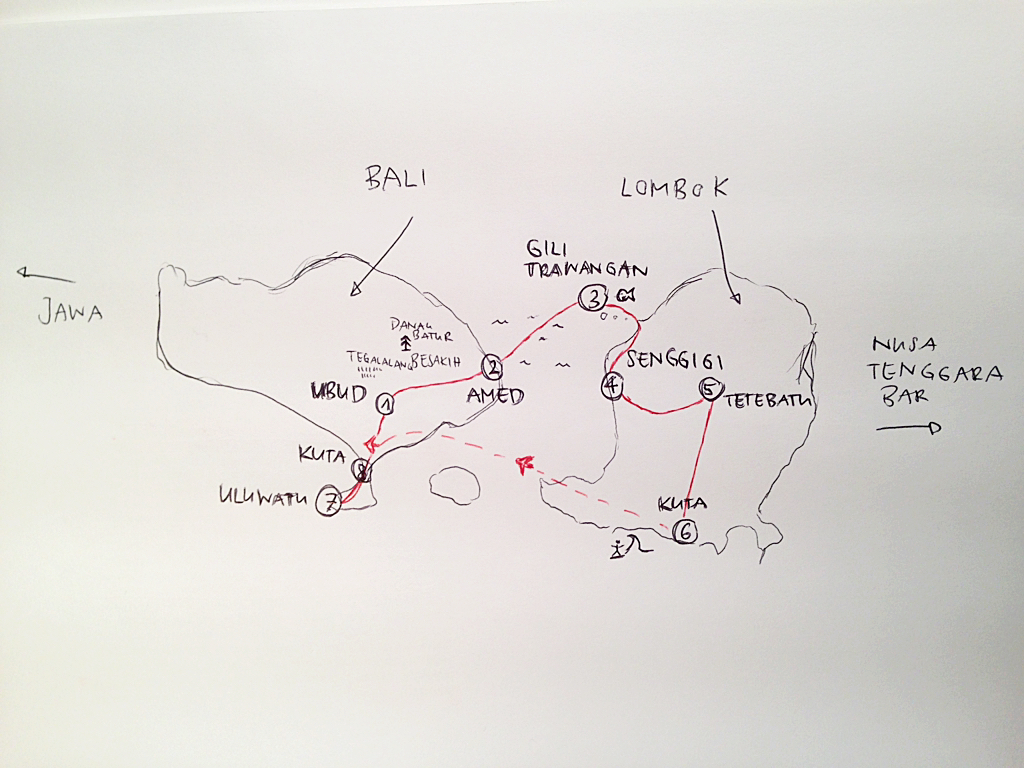 BALI
LOMBOK
GILI
TRAWANGAN
3
JAWA
DANAU
BATUR
TEGALALANG
BESAKIH
2
AMED
UBUD
1
SENGGIGI
4
5
TETEBATU
NUSA
TENGGARA
BAR
KUTA
8
ULUWATU
7
KUTA
6